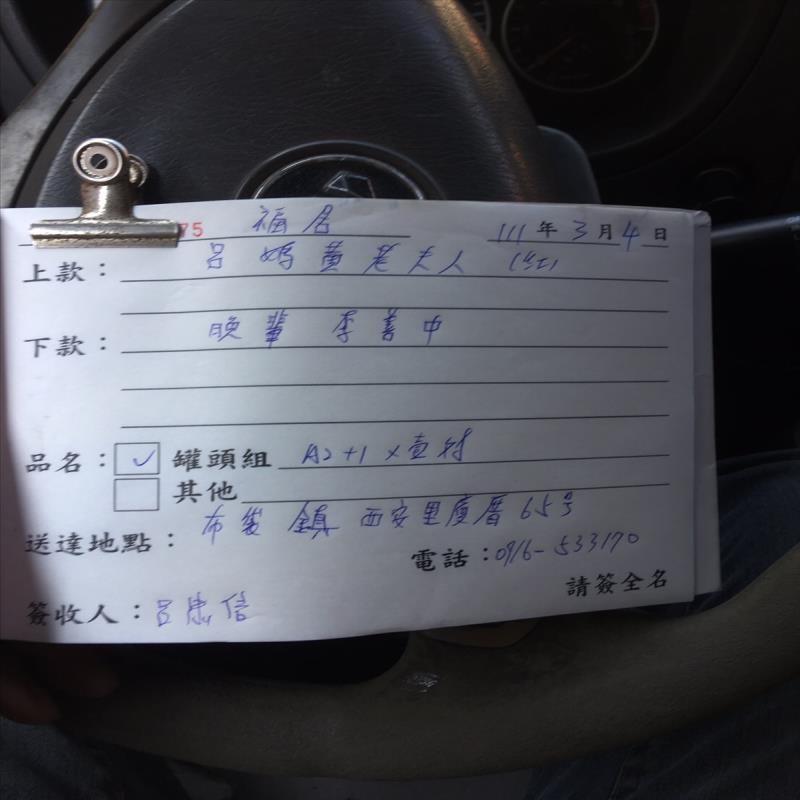 75 福居 111年3月4日
上款：呂媽黃老夫人 (紅)
下款：晚輩 李善中
品名：✓ 罐頭組 A2+1×壹對
其他
送達地點：布袋鎮西安里廈厝65号
電話：0916-533170
請簽全名
簽收人：呂忠信